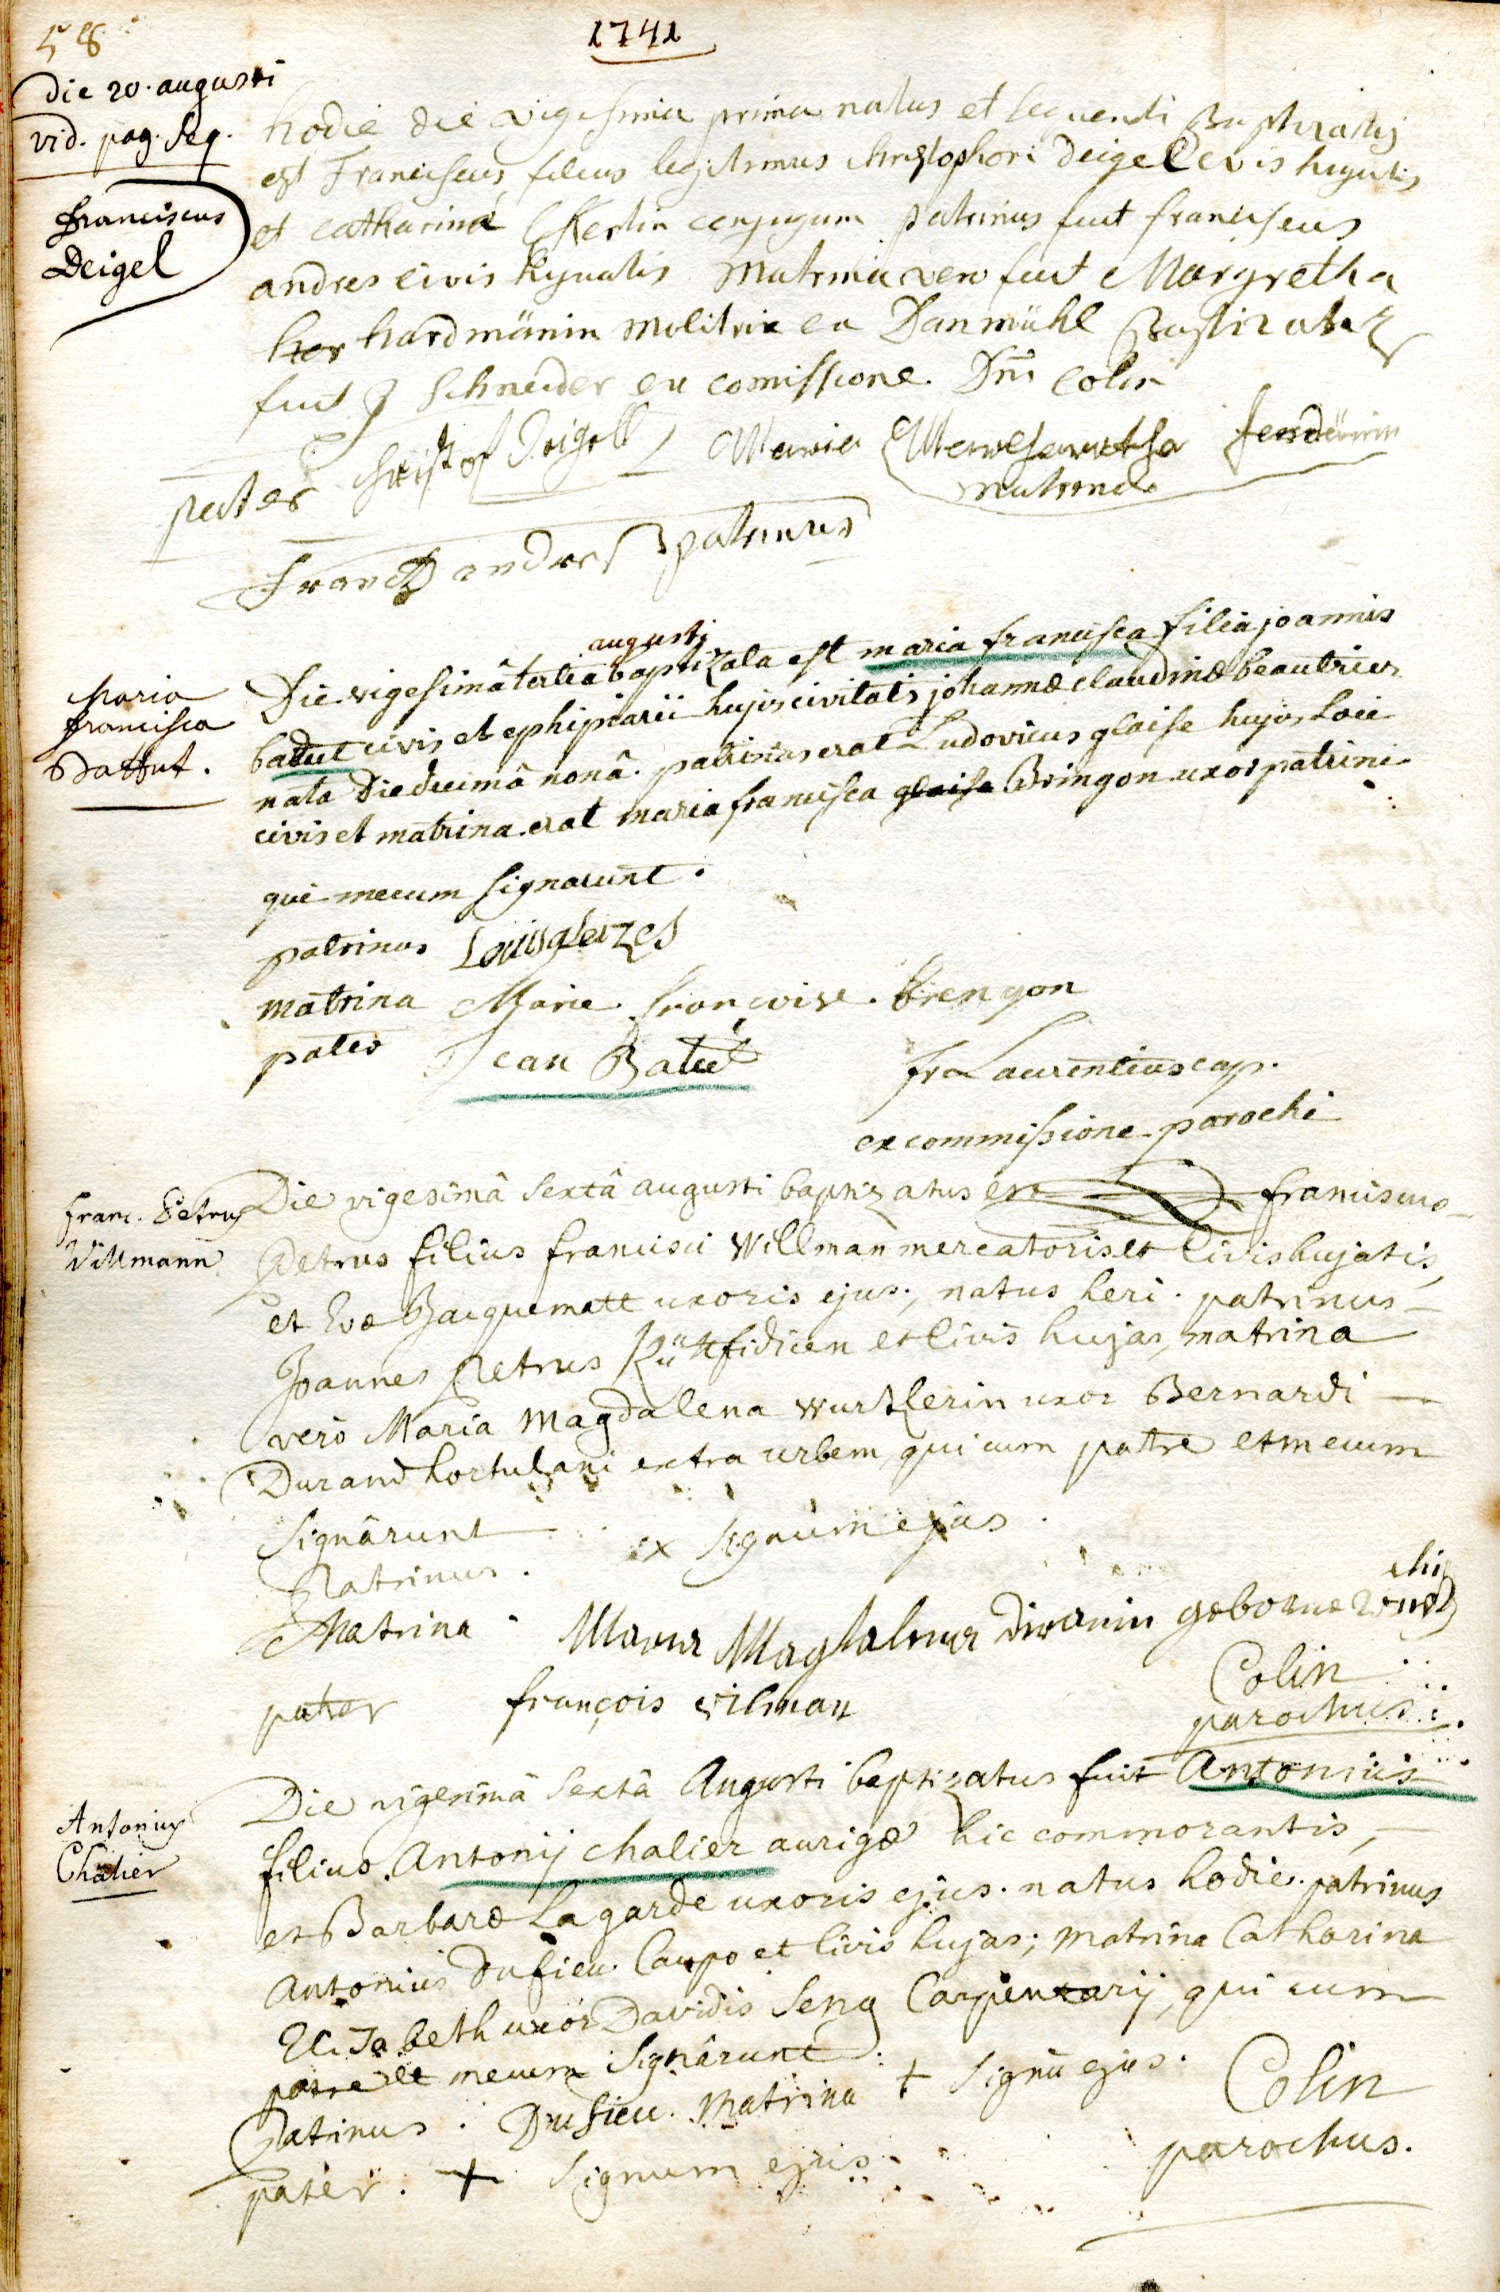 58
1741
die 20. augusti
vid. pag. seq.
Franciscus
Deigel
hodie die vigesima prima natus et sequenti Baptizatus
est Franciscus filius legitimus christophori deigel civis hujatis
et catharina Kerlin conjugum patrinus fuit franciscus
andres civis hujatis Matrina vero fuit Margretha
hardmänin molitrix ex Danmühl Baptizatus
fuit Schneider ex comissione Dni Colin
pater Christof Deigell Maria
matrina
Frantz andres patrinus
Maria
francisca
Battut.
augusti
Die vigesimâ tertia baptizata est maria francisca filia joannis
batut civis et ephipiarii hujus civitatis johannæ claudinæ beautrier
nata Die decimâ nonâ. patrinus erat Ludovicus glaise hujus Loci
civis et matrina erat maria francisca glaise Bringon uxor patrini
qui mecum signarunt.
patrinus Louis gleizes
matrina Marie françoise brengon
pater Jean Batut
fr Laurentius cap.
ex commissione parochi
Franc. Petrus
Villmann
Die vigesimâ sextâ augusti baptizatus est franciscus
Petrus filius francisci Willman mercatoris et Civis hujatis,
et Evæ Jacquematt uxoris ejus, natus heri. patrinus
Joannes Petrus fidicen et Civis hujas, matrina
verò Maria Magdalena Wurtzlerin uxor Bernardi
Durand hortulani extra urbem, qui cum patre et mecum
signârunt
Patrinus. x signum ejus.
Matrina Maria Magdalena Diranin geborne
pater françois vilman
Colin
parochus
Antonius
Chalier
Die vigesimâ sextâ Augusti baptizatus fuit Antonius
filius Antonij chalier aurigæ hic commorantis,
et Barbaræ Lagarde uxoris ejus. natus hodie. patrinus
Antonius Dufieu Caupo et Civis hujas; matrina Catharina
Elisabeth uxor Davidis Seng Carpentarij, qui cum
patre et mecum signârunt.
Patrinus. Dufieu. Matrina + signū ejus.
pater. + signum ejus
Colin
parochus.